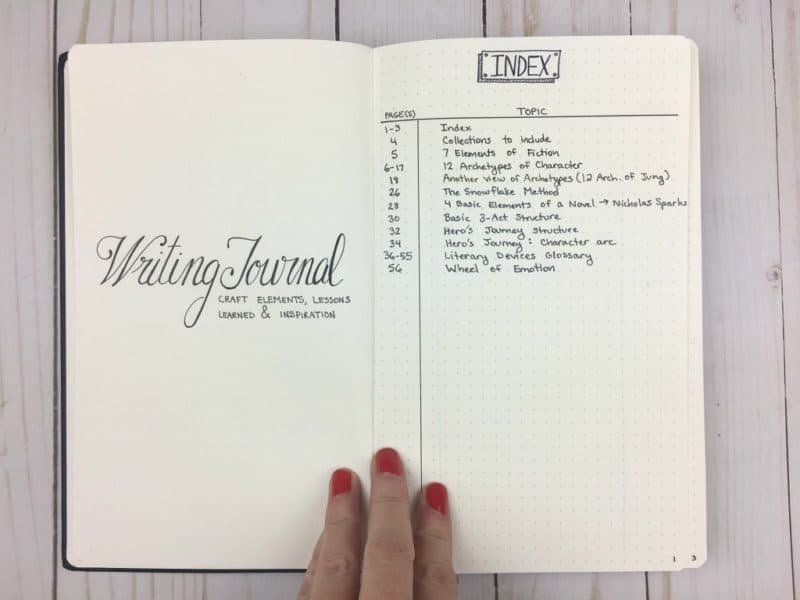 Writing Journal
CRAFT ELEMENTS, LESSONS
LEARNED & INSPIRATION
INDEX
PAGE(S) TOPIC
1-3 Index
4 Collections to include
5 7 Elements of Fiction
6-17 12 Archetypes of Character
18 Another view of Archetypes (12 Arch. of Jung)
26 The Snowflake Method
28 4 Basic Elements of a Novel → Nicholas Sparks
30 Basic 3-Act Structure
32 Hero's Journey Structure
34 Hero's Journey: Character arc
36-55 Literary Devices Glossary
56 Wheel of Emotion
1 3